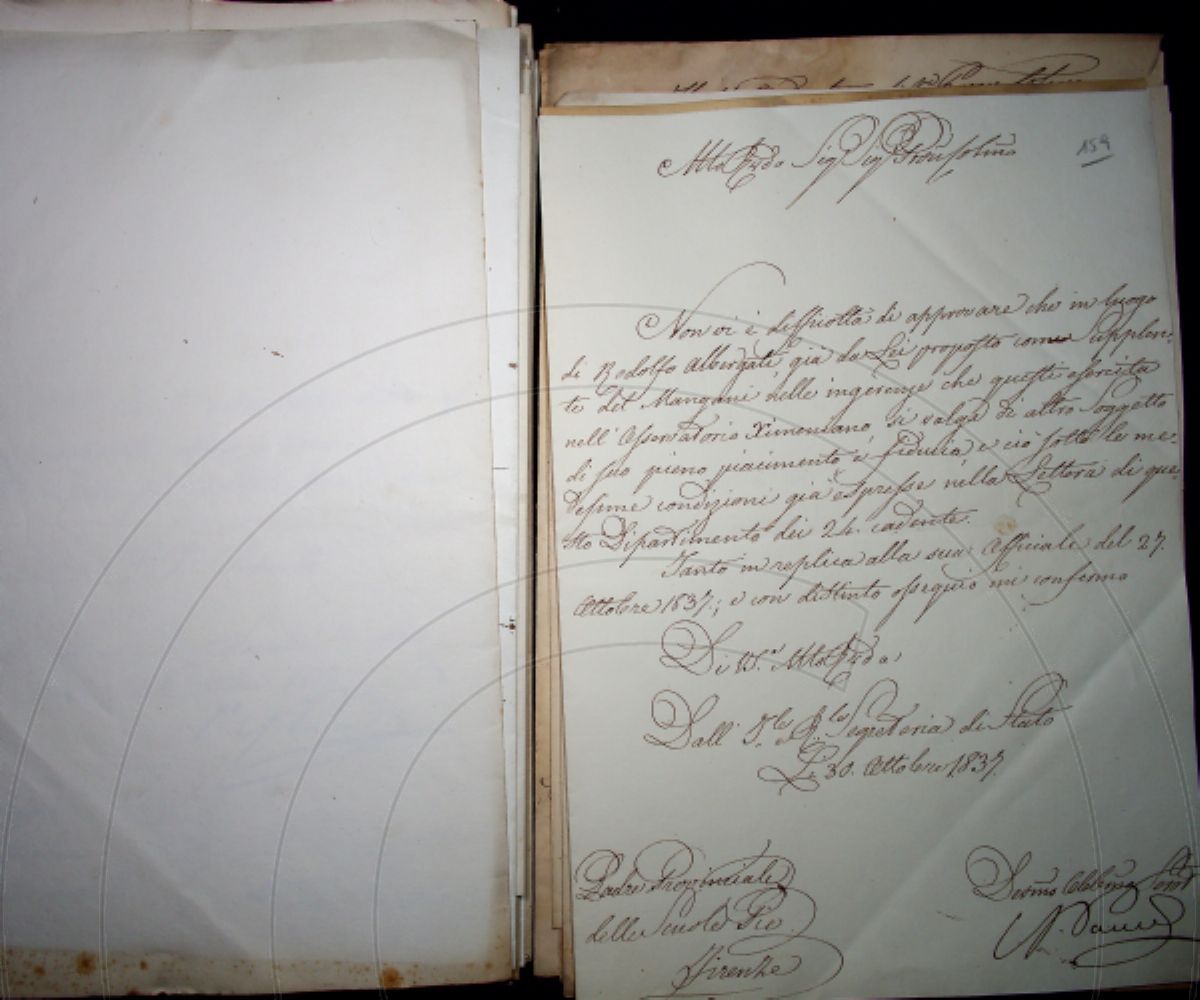 Mto Rndo Sig Sig Pron Colmo
159
Non vi è difficoltà di approvare che in luogo
di Rodolfo Albergati già da Lei proposto come Supplen-
te del Mangani nelle ingerenze che questi esercita
nell'Osservatorio Ximeniano, si valga di altro Soggetto
di suo pieno piacimento e fiducia e ciò sotto le me-
desime condizioni già espresse nella Lettera di que-
sto Dipartimento dei 24. cadente.
Tanto in replica alla sua Officiale del 27.
Ottobre 1837.; e con distinto ossequio mi confermo
Di VS. Mto Rnda
Dall' I. e R. Segreteria di Stato
Li 30. Ottobre 1837.
Padre Provinciale
delle Scuole Pie
Firenze
Devmo Obblmo